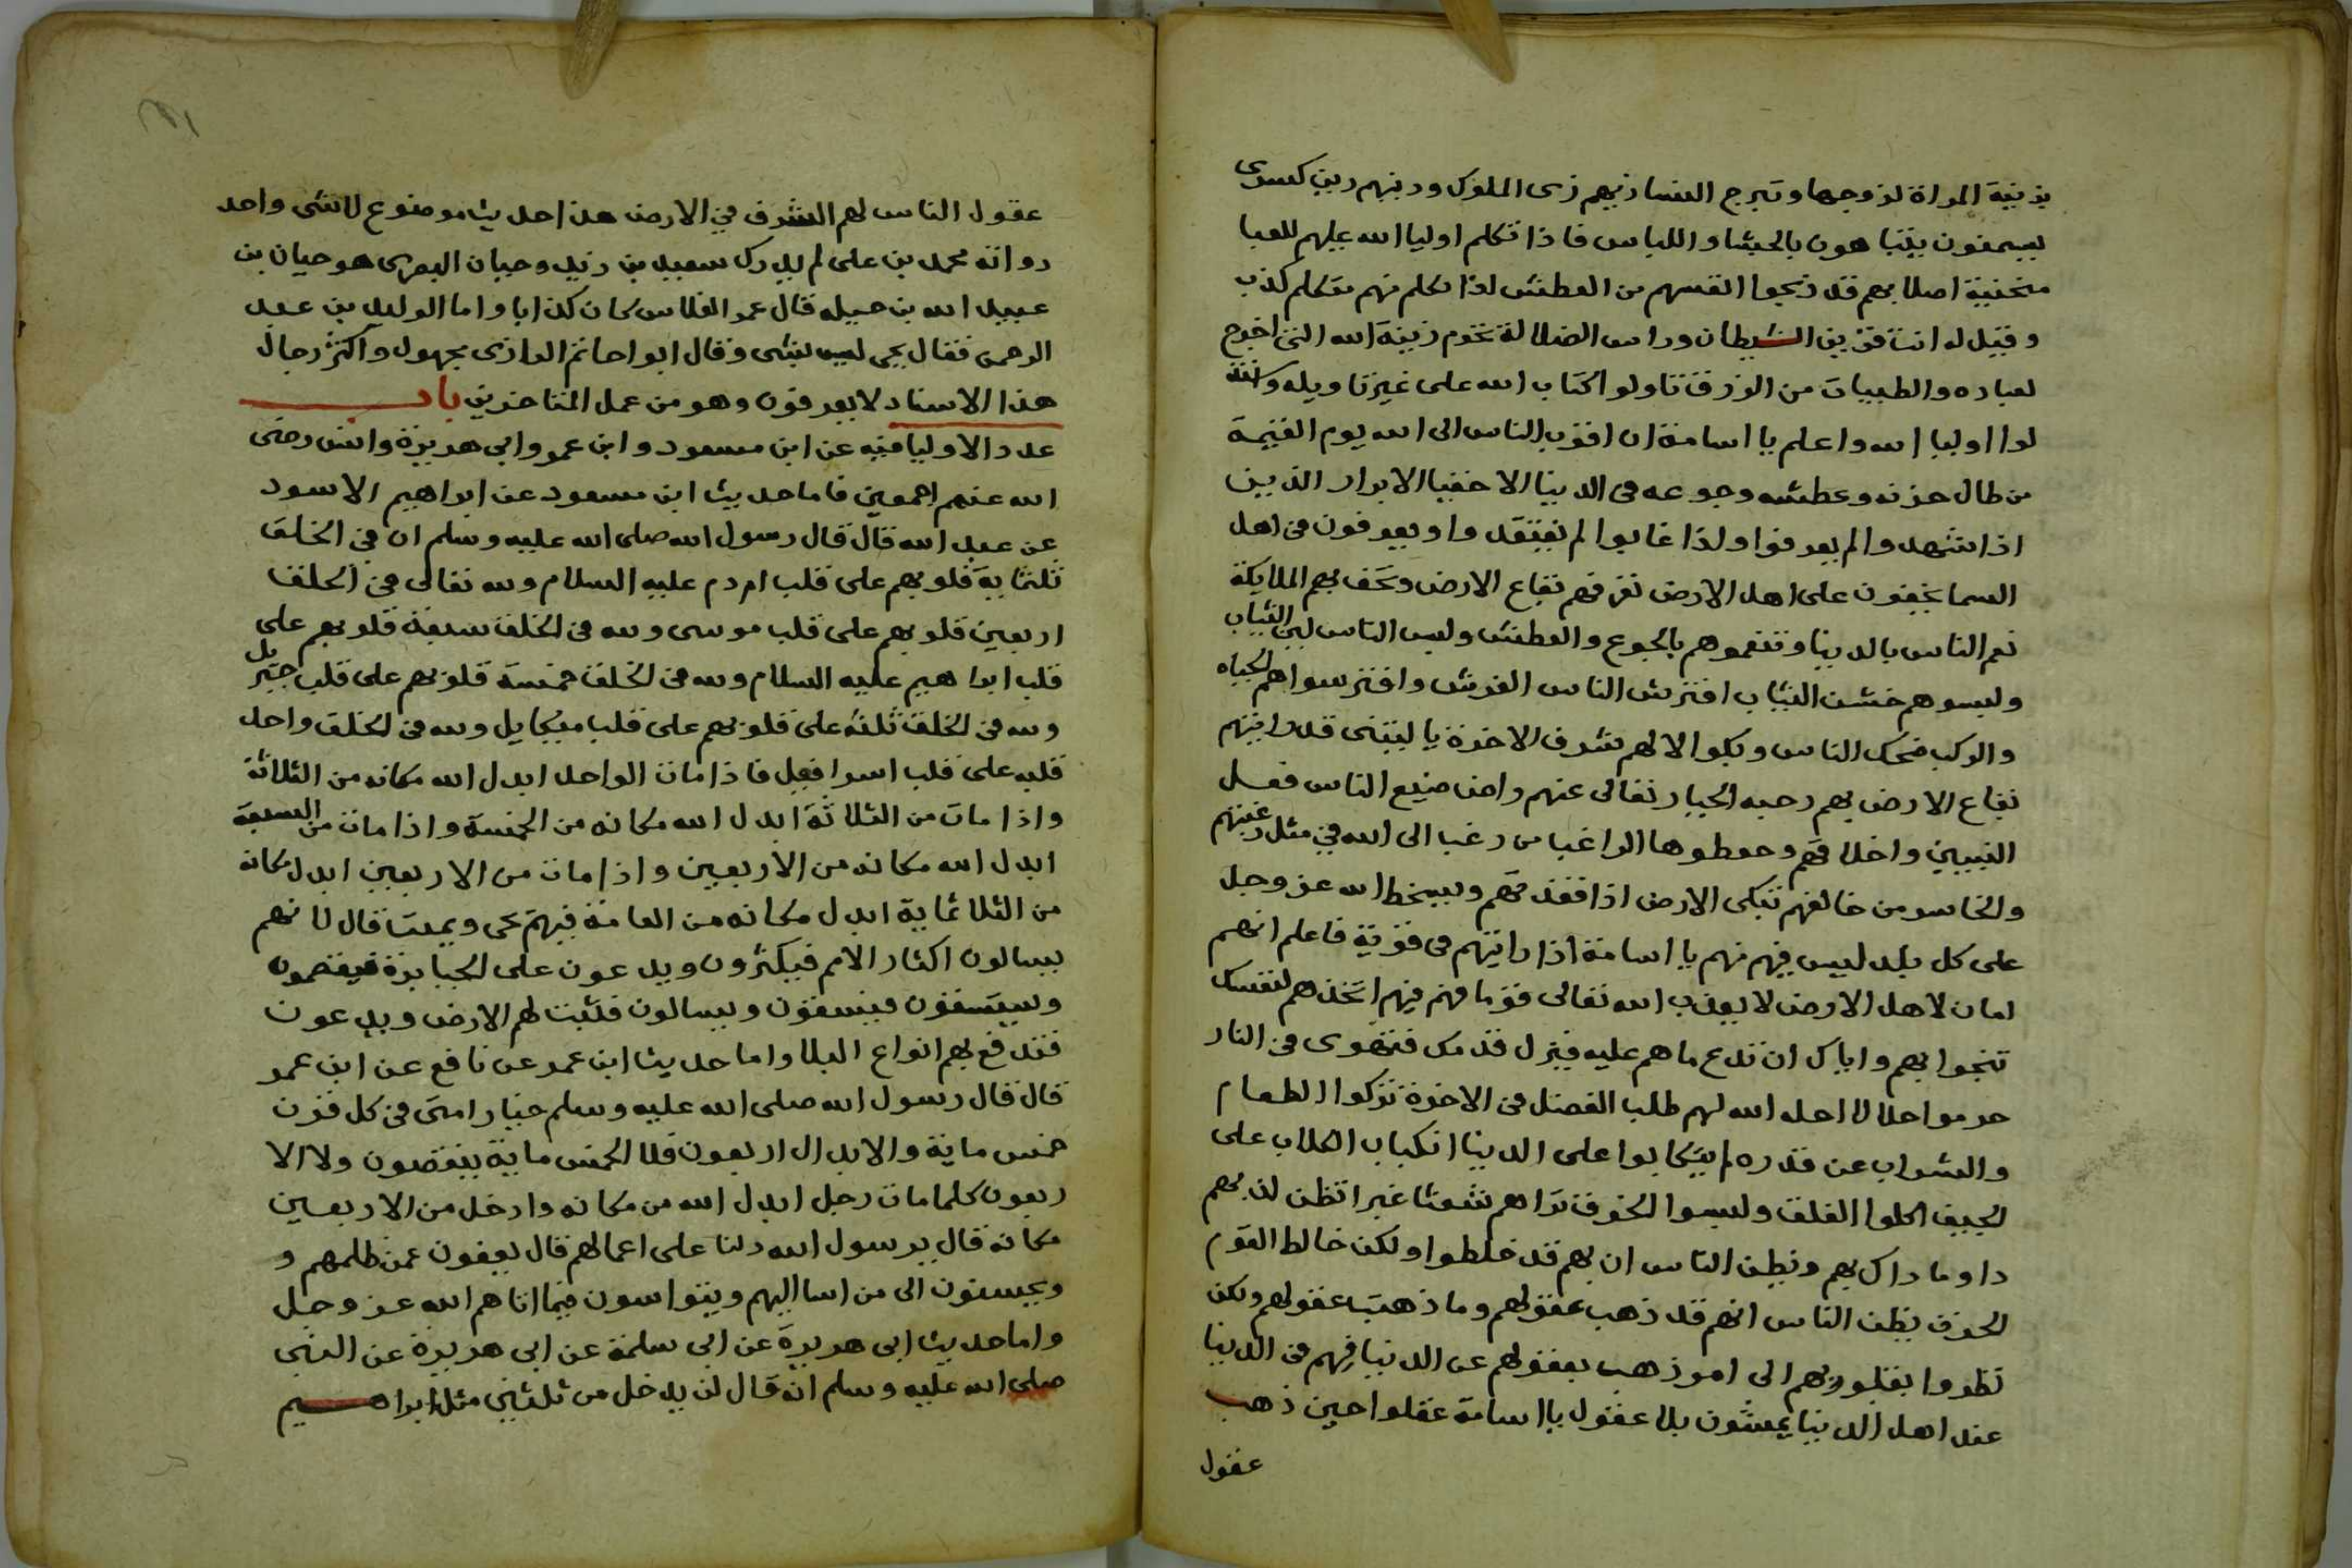 بزينة المراة لزوجها وتبرج النسا زيهم زى الملوك ودينهم دين كسرى
يسمنون يتباهون بالحشا واللباس فاذا تكلم اوليا الله عليهم العبا
منحنية اصلابهم قد ذبحوا انفسهم من العطش اذا تكلم منهم متكلم كذب
وقيل له انت قرين الشيطان وراس الضلالة تحرم زينة الله التى اخرج
لعباده والطيبات من الرزق تاولوا الكتاب الله على غير تاويله
اوليا الله واعلم يا اسامة ان اقرب الناس الى الله يوم القيمة
من طال حزنه وعطشه وجوعه فى الدنيا الاخفيا الابرار الذين
اذا شهدوا لم يعرفوا واذا غابوا لم يفتقدوا ويعرفون فى اهل
السما يخفون على اهل الارض تعرفهم بقاع الارض وتحف بهم الملايكة
نعم الناس بالدنيا وتنعموا هم بالجوع والعطش ولبس الناس لين الثياب
ولبسوا هم خشن الثياب افترش الناس الفرش وافترشوا هم الجباه
والركب ضحك الناس وبكوا الا لهم شرف الاخرة يا ليتنى قد رايتهم
بقاع الارض بهم رحبه الجبار تعالى عنهم راض ضيع الناس فعل
النبيين واخلاقهم وحفظوها الراغب من رغب الى الله فى مثل رغبتهم
والخاسر من خالفهم تبكى الارض اذا فقدتهم ويسخط الله عز وجل
على كل بلد ليس فيهم منهم يا اسامة اذا رايتهم فى قرية فاعلم انهم
امان لاهل الارض لا يعذب الله تعالى قوما هم فيهم اتخذهم لنفسك
تنجوا بهم واياك ان تدع ما هم عليه فيزل قدمك فتهوى فى النار
حرموا حلالا احله الله لهم طلب الفضل فى الاخرة تركوا الطعام
والشراب عن قدره لم يتكابوا على الدنيا انكباب الكلاب على
الجيف اكلوا الفلق ولبسوا الخرق تراهم شعثا غبرا تظن ان بهم
دا وما ذاك بهم ويظن الناس ان بهم قد خلطوا ولكن خالط القوم
الحزن يظن الناس انهم قد ذهب عقولهم وما ذهبت عقولهم ولكن
نظروا بقلوبهم الى امر ذهب بعقولهم عن الدنيا فهم فى الدنيا
عند اهل الدنيا يمشون بلا عقول يا اسامة عقلوا حين ذهب
عقول
عقول الناس لهم الشرف فى الارض هذا حديث موضوع لا شى واحد
رواته محمد بن على لم يدرك سعيد بن زيد وحبان البصرى هو حبان بن
عبيد الله بن جبله قال عمر الفلاس كان كذابا واما الوليد بن عبد
الرحمن فقال يحيى ليس بشى وقال ابوا حاتم الرازى مجهول واكثر رجال
هذا الاسناد لا يعرفون وهو من عمل المتاخرين باب
عدد الاوليا فيه عن ابن مسعود وابن عمر وابى هريرة وانس رضى
الله عنهم اجمعين فاما حديث ابن مسعود عن ابراهيم الاسود
عن عبد الله قال قال رسول الله صلى الله عليه وسلم ان فى الخلق
ثلثماية قلوبهم على قلب ادم عليه السلام ولله تعالى فى الخلق
اربعين قلوبهم على قلب موسى ولله فى الخلق سبعة قلوبهم على
قلب ابراهيم عليه السلام ولله فى الخلق خمسة قلوبهم على قلب جبريل
ولله فى الخلق ثلثه على قلوبهم على قلب ميكايل ولله فى الخلق واحد
قلبه على قلب اسرافيل فاذا مات الواحد ابدل الله مكانه من الثلاثة
واذا مات من الثلاثة ابدل الله مكانه من الخمسة واذا مات من السبعة
ابدل الله مكانه من الاربعين واذا مات من الاربعين ابدل مكانه
من الثلاثماية ابدل مكانه من العامة فبهم يحى ويميت قال لانهم
يسالون اكثار الامم فيكثرون ويدعون على الجبابرة فيقصمون
ويستسقون فيسقون ويسالون فتنبت لهم الارض ويدعون
فتدفع بهم انواع البلا واما حديث ابن عمر عن نافع عن ابن عمر
قال قال رسول الله صلى الله عليه وسلم خيار امتى فى كل قرن
خمس ماية والابدال اربعون فلا الخمس ماية ينقصون ولا الا
ربعون كلما مات رجل ابدل الله من مكانه وادخل من الاربعين
مكانه قال يرسول الله دلنا على اعمالهم قال يعفون عمن ظلمهم و
ويحسنون الى من اسا اليهم ويتواسون فيما اتاهم الله عز وجل
واما حديث ابى هريرة عن ابى سلمة عن ابى هريرة عن النبى
صلى الله عليه وسلم انه قال لن يدخل من ثلثين مثل ابراهيم